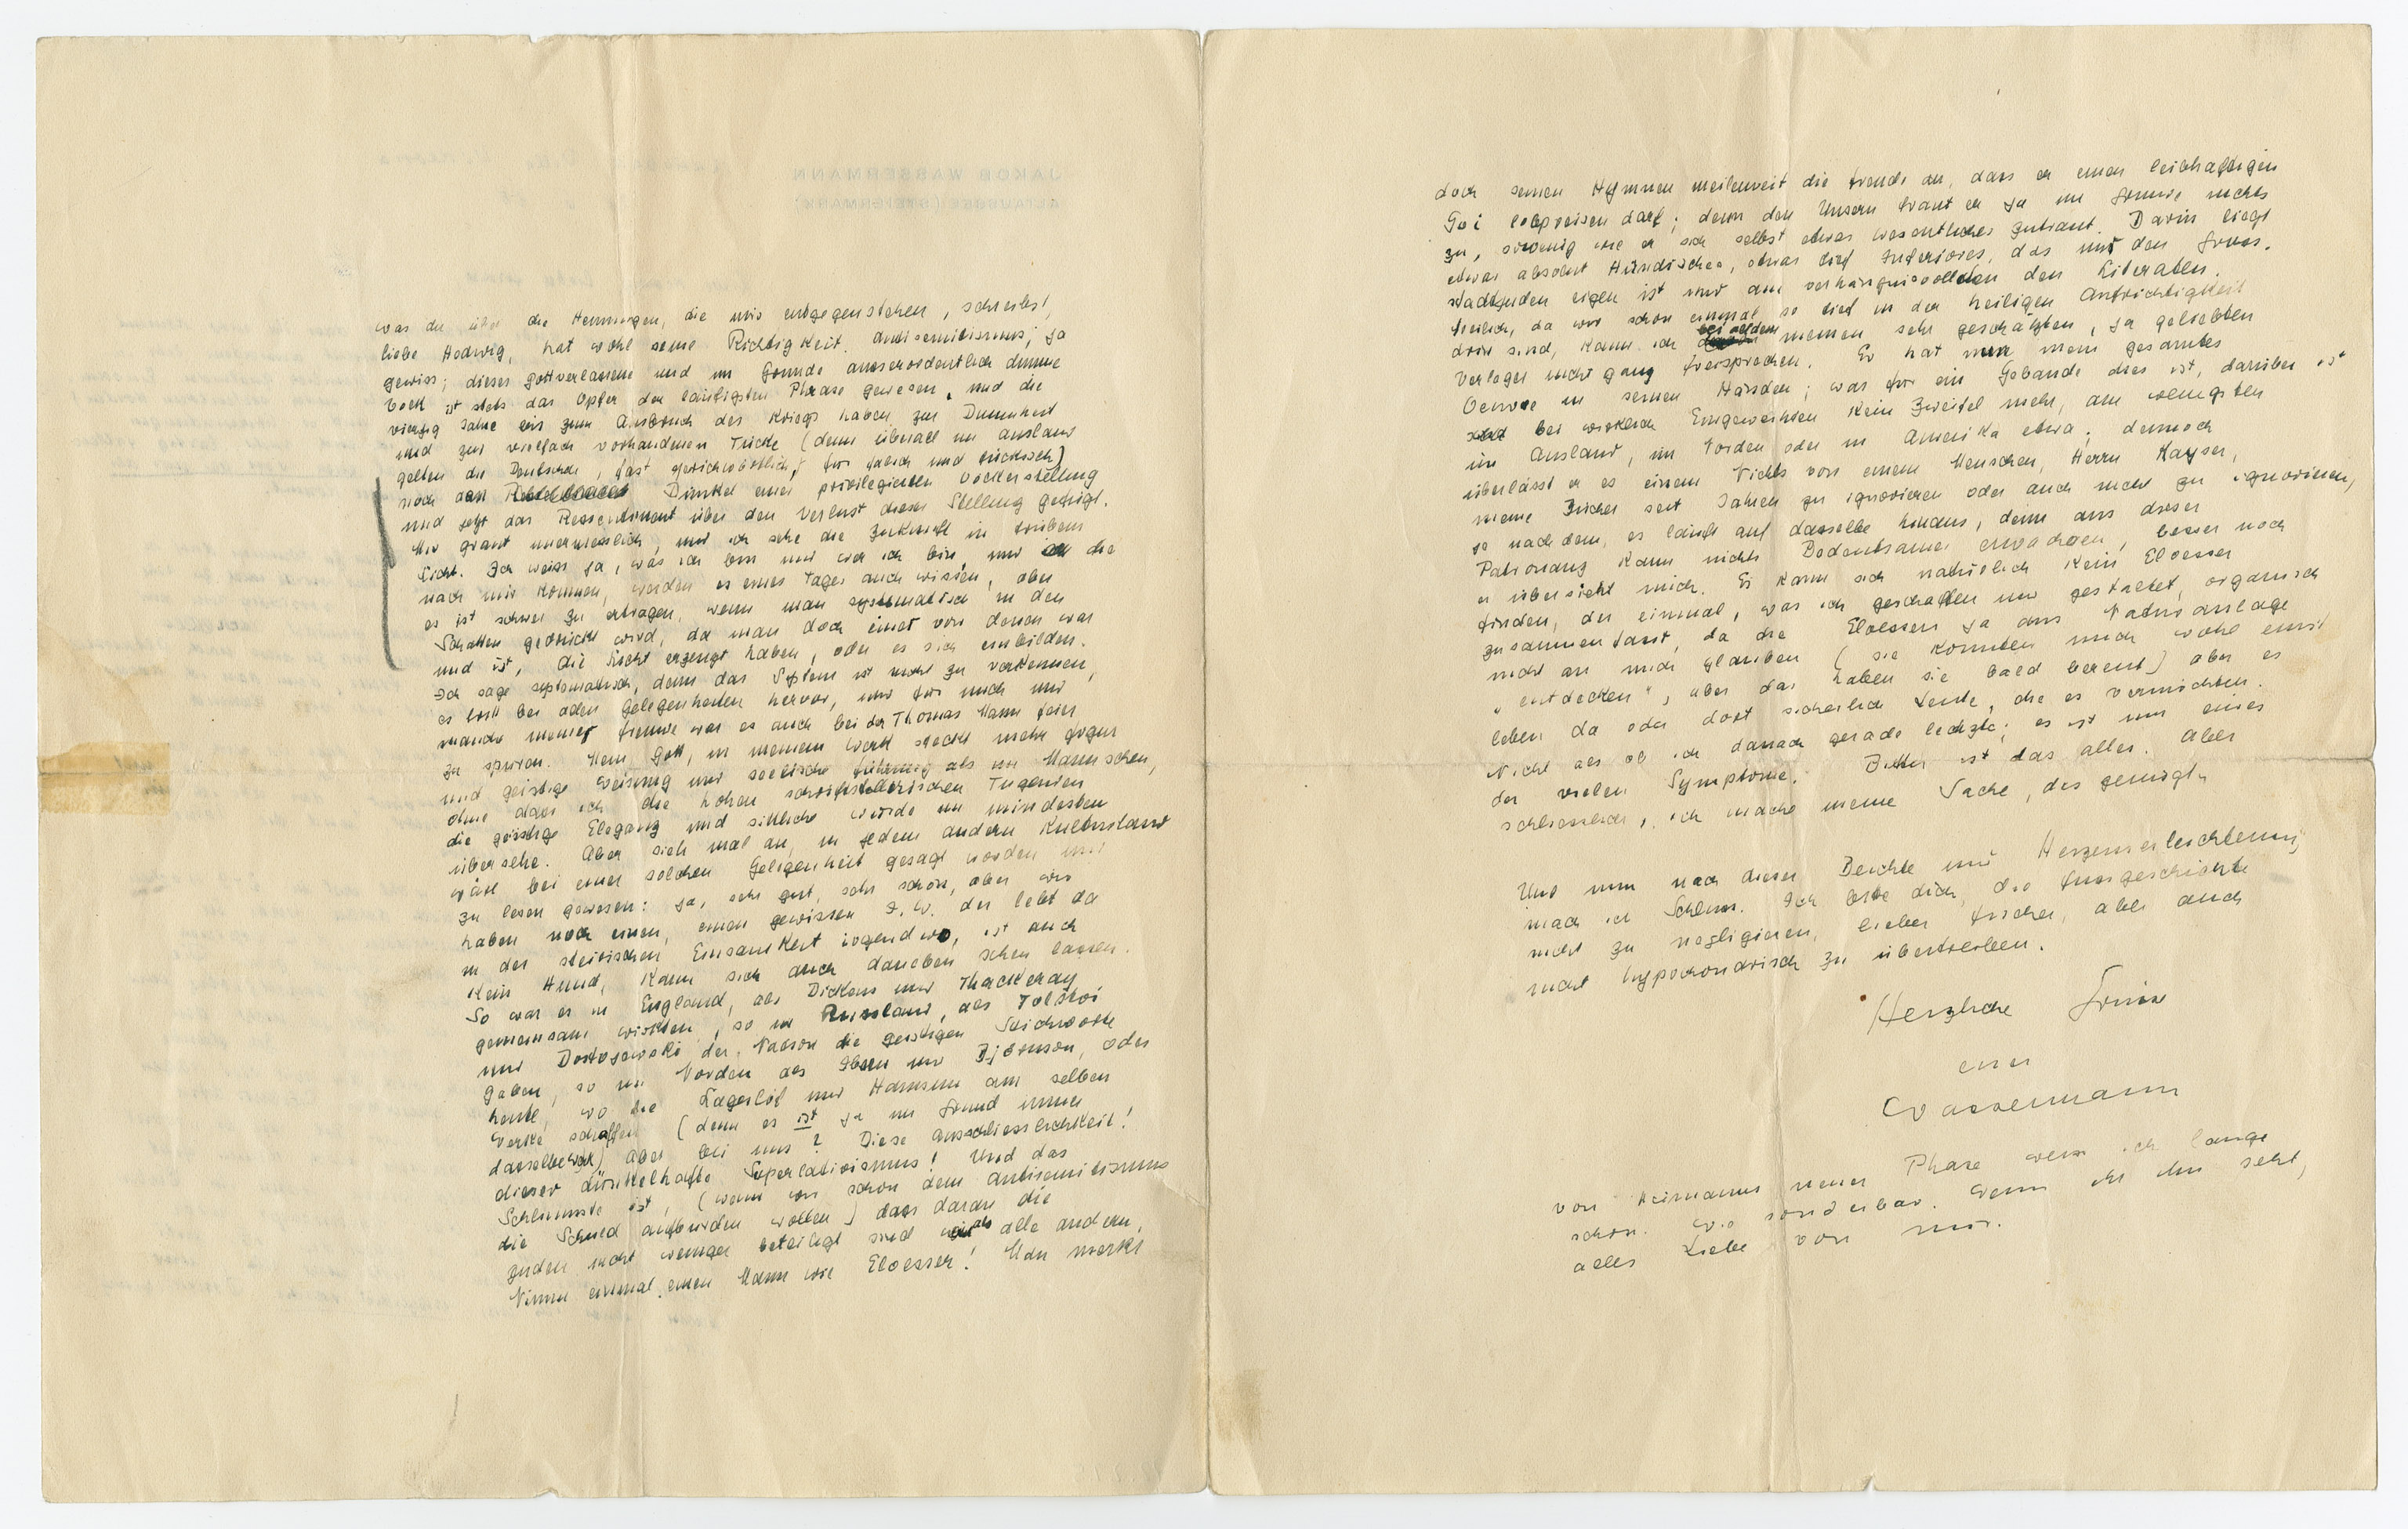 was du über die Hemmungen, die mir entgegenstehen, schreibst,
liebe Hedwig, hat wohl seine Richtigkeit. Antisemitismus; ja
gewiss; dieses gottverlassene und im Grunde ausserordentlich dumme
Volk ist stets das Opfer der läufigsten Phrase gewesen, und die
vierzig Jahre bis zum Ausbruch des Kriegs haben zur Dummheit
und zur vielfach vorhandenen Tücke (denn überall im Ausland
gelten die Deutschen, fast sprichwörtlich, für falsch und tückisch)
noch den Dünkel einer privilegierten Völkerstellung
und jetzt das Ressentiment über den Verlust dieser Stellung gefügt.
Mir graut unermesslich, und ich sehe die Zukunft in trübem
Licht. Ich weiss ja, was ich bin und wer ich bin, und die
nach mir kommen, werden es eines Tages auch wissen, aber
es ist schwer zu ertragen, wenn man systematisch in den
Schatten gedrückt wird, da man doch einer von denen war
und ist, die Licht erzeugt haben, oder es sich einbilden.
Ich sage systematisch, denn das System ist nicht zu verkennen,
es lost bei allen Gelegenheiten hervor, und für mich und
manche meiner Freunde war es auch bei der Thomas Mann Feier
zu spüren. Mein Gott, in meinem Werk steckt mehr Figur
und geistige Weisung und seelische Führung als im Mannschen,
ohne dass ich die hohen schriftstellerischen Tugenden
die geistige Eleganz und sittliche Würde im mindesten
übersehe. Aber sieh mal an, in jedem andern Kulturland
wäre bei einer solchen Gelegenheit gesagt worden und
zu lesen gewesen: ja, sehr gut, sehr schön, aber wir
haben noch einen, einen gewissen J. W. der lebt da
in der steirischen Einsamkeit irgendwo, ist auch
kein Hund, kann sich auch daneben sehen lassen.
So war es in England, als Dickens und Thackeray
gemeinsam wirkten, so in Russland, als Tolstoi
und Dostojewski der Nation die geistigen Stichworte
gaben, so im Norden als Ibsen und Björnson, oder
heute, wo die Lagerlöf und Hamsun am selben
Werke schaffen (denn es ist ja im Grund immer
dasselbe Werk) aber bei uns? Diese Ausschliesslichkeit!
dieser dünkelhafte Superlativismus! Und das
Schlimmste ist, (wenn wir schon dem Antisemitismus
die Schuld aufbürden wollen) dass daran die
Juden nicht weniger beteiligt sind als alle andern.
Nimm einmal einen Mann wie Eloesser! Man merkt
doch seinen Hymnen meilenweit die Freude an, dass er einen leibhaftigen
Goi lobpreisen darf; denn den Unsern traut er ja im Grunde nichts
zu, sowenig wie er sich selbst etwas wesentliches zutraut. Darin liegt
etwas absolut Hündisches, etwas tief Inferiores, das uns den Gross-
stadtjuden eigen ist und am verhängnisvollsten den Literaten.
Freilich, da wir schon einmal so tief in der heiligen Aufrichtigkeit
drin sind, kann ich bei alldem meinen sehr geschätzten, ja geliebten
Verleger nicht ganz freisprechen. Er hat nun mein gesamtes
Oeuvre in seinen Händen; was für ein Gebäude dies ist, darüber ist
bei wirklich Eingeweihten kein Zweifel mehr, am wenigsten
im Ausland, im Norden oder in Amerika etwa; dennoch
überlässt er es einem Nichts von einem Menschen, Herrn Kayser,
meine Bücher seit Jahren zu ignorieren oder auch nicht zu ignorieren,
je nachdem, es läuft auf dasselbe hinaus, denn aus dieser
Patronanz kann nichts Bedeutsames erwachsen, besser noch
er übersieht mich. Es kann sich natürlich kein Eloesser
finden, der einmal, was ich geschaffen und gestaltet, organisch
zusammenfasst, da die Eloessers ja aus Naturanlage
nicht an mich glauben (sie konnten mich wohl einst
„entdecken", aber das haben sie bald bereut) aber es
leben da oder dort sicherlich Leute, die es vermöchten.
Nicht als ob ich danach gerade lechzte; es ist nur eines
der vielen Symptome. Bitter ist das alles. Aber
schliesslich, ich mache meine Sache, das genügt.
Und nun nach dieser Beichte und Herzenserleichterung
mach ich Schluss. Ich bitte dich, die Fussgeschichte
nicht zu negligieren, lieber Fischer, aber auch
nicht hypochondrisch zu übertreiben.
Herzliche Grüsse
euer
Wassermann
Von Heimanns neuer Phase weiss ich lange
schon. Wie sonderbar. Wenn ihr ihn seht,
alles Liebe von mir.